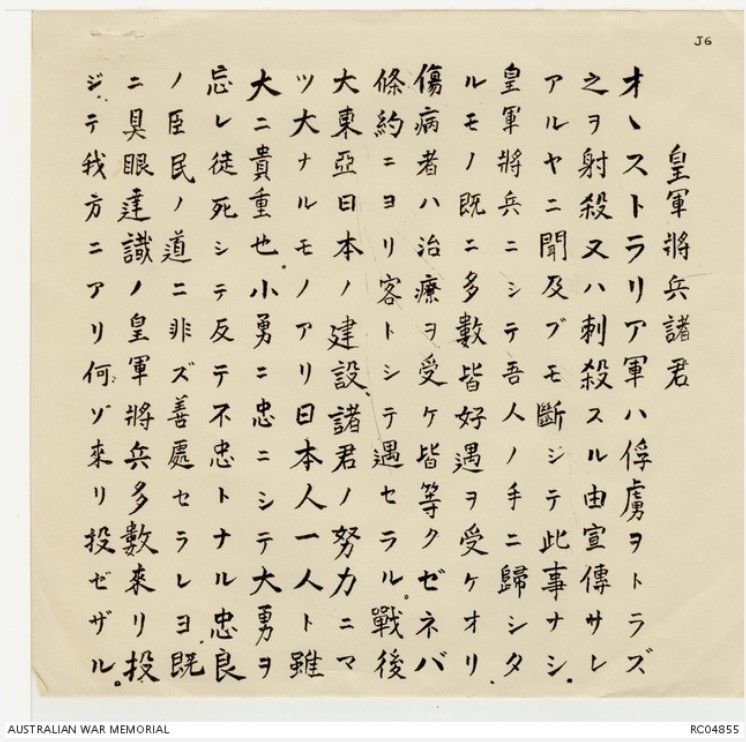 J6
皇軍將兵諸君
オヽストラリア軍ハ俘虜ヲトラズ
之ヲ射殺又ハ刺殺スル由宣傳サレ
アルヤニ聞及ブモ斷ジテ此事ナシ.
皇軍將兵ニシテ吾人ノ手ニ歸シタ
ルモノ既ニ多數皆好遇ヲ受ケオリ.
傷病者ハ治療ヲ受ケ皆等クゼネバ
條約ニヨリ客トシテ遇セラル。戰後
大東亞日本ノ建設、諸君ノ努力ニマ
ツ大ナルモノアリ日本人一人ト雖
大ニ貴重也。小勇ニ忠ニシテ大勇ヲ
忘レ徒死シテ反テ不忠トナル忠良
ノ臣民ノ道ニ非ズ善處セラレヨ.既
ニ具眼達識ノ皇軍將兵多數來リ投
ジテ我方ニアリ何ゾ來リ投ゼザル。
AUSTRALIAN WAR MEMORIAL
RC04855